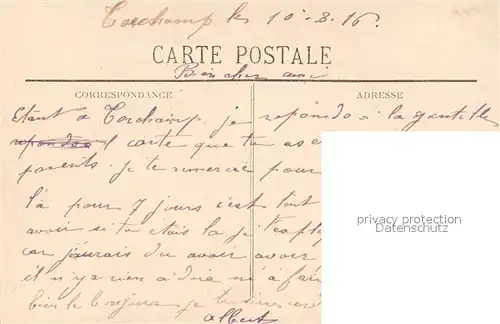 Torchamp les 10-8-16.
CARTE POSTALE
Bien cher ami
CORRESPONDANCE
ADRESSE
Etant a Torchamp. je repondo a la gentille
repondo carte que tu as
parents. je te remercie pour
là pour 7 jours c'est tout
avoir si tu etais la je t'
car j'aurais du avoir avoir
il n'y a rien a dire ni a fair
bien le bonjour je te
Albert
privacy protection
Datenschutz